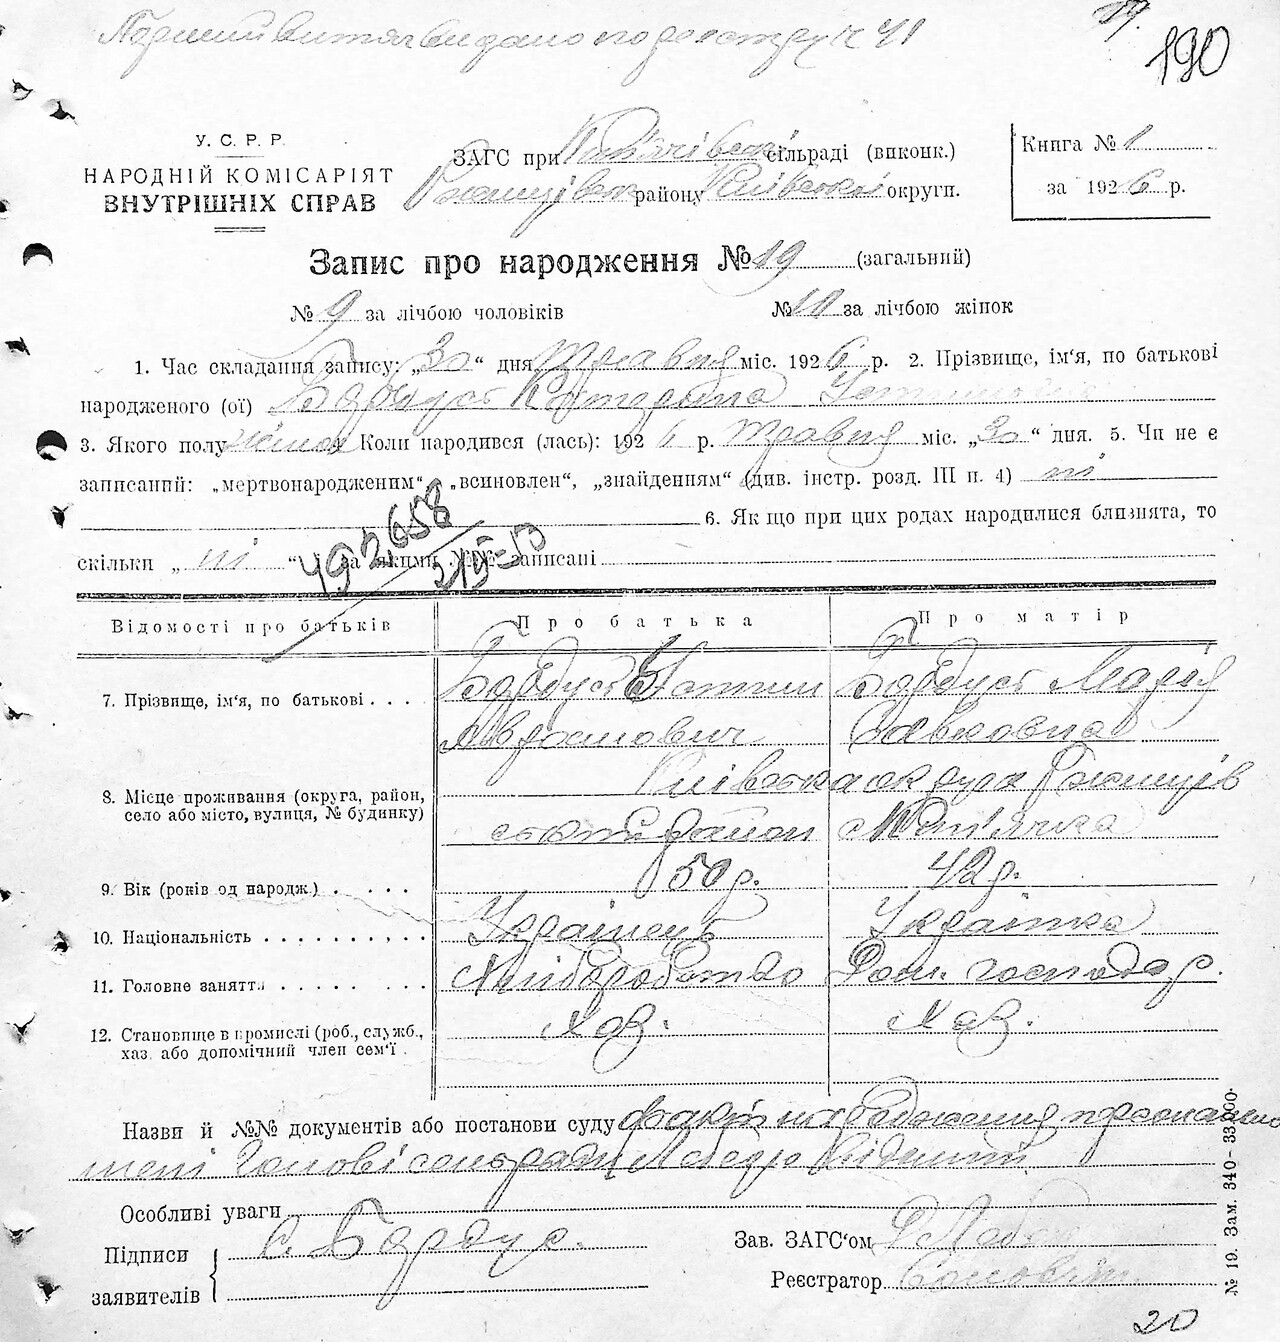 190
У. С. Р. Р.
НАРОДНІЙ КОМІСАРІЯТ
ВНУТРІШНІХ СПРАВ
ЗАГС при сільраді (виконк.)
району Київської округи.
Книга № 1
за 1926 р.
Запис про народження № 19 (загальний)
№ 9 за лічбою чоловіків № 10 за лічбою жінок
1. Час складання запису: „30“ дня травня міс. 1926 р. 2. Прізвище, ім'я, по батькові
народженого (ої) Бардусь Катерина
3. Якого полу жіноч 4. Коли народився (лась): 1926 р. травня міс. „30“ дня. 5. Чи не є
записаний: „мертвонародженим“, „всиновлен“, „знайденням“ (див. інстр. розд. III п. 4) ні
6. Як що при цих родах народилися близнята, то
скільки „ ні “ за якими №№ записані
492658
Відомості про батьків Про батька Про матір
7. Прізвище, ім'я, по батькові . . . . Бардусь Бардусь Марія
Савковна
8. Місце проживання (округа, район, село або місто, вулиця, № будинку) Київська округа
район
9. Вік (років од народж.) . . . . 50 р. 42 р.
10. Національність . . . . . . . . . . Українець Українка
11. Головне заняття . . . . . . . . Хліборобство Дом. господар.
12. Становище в промислі (роб., служб., хаз. або допомічний член сем'ї . Хаз. Хаз.
Назви й №№ документів або постанови суду факт народження
мені Голові сельради
Особливі уваги
Підписи
заявителів
Бардус.
Зав. ЗАГС'ом
Реєстратор
№ 19. Зам. 340-33.000.
20